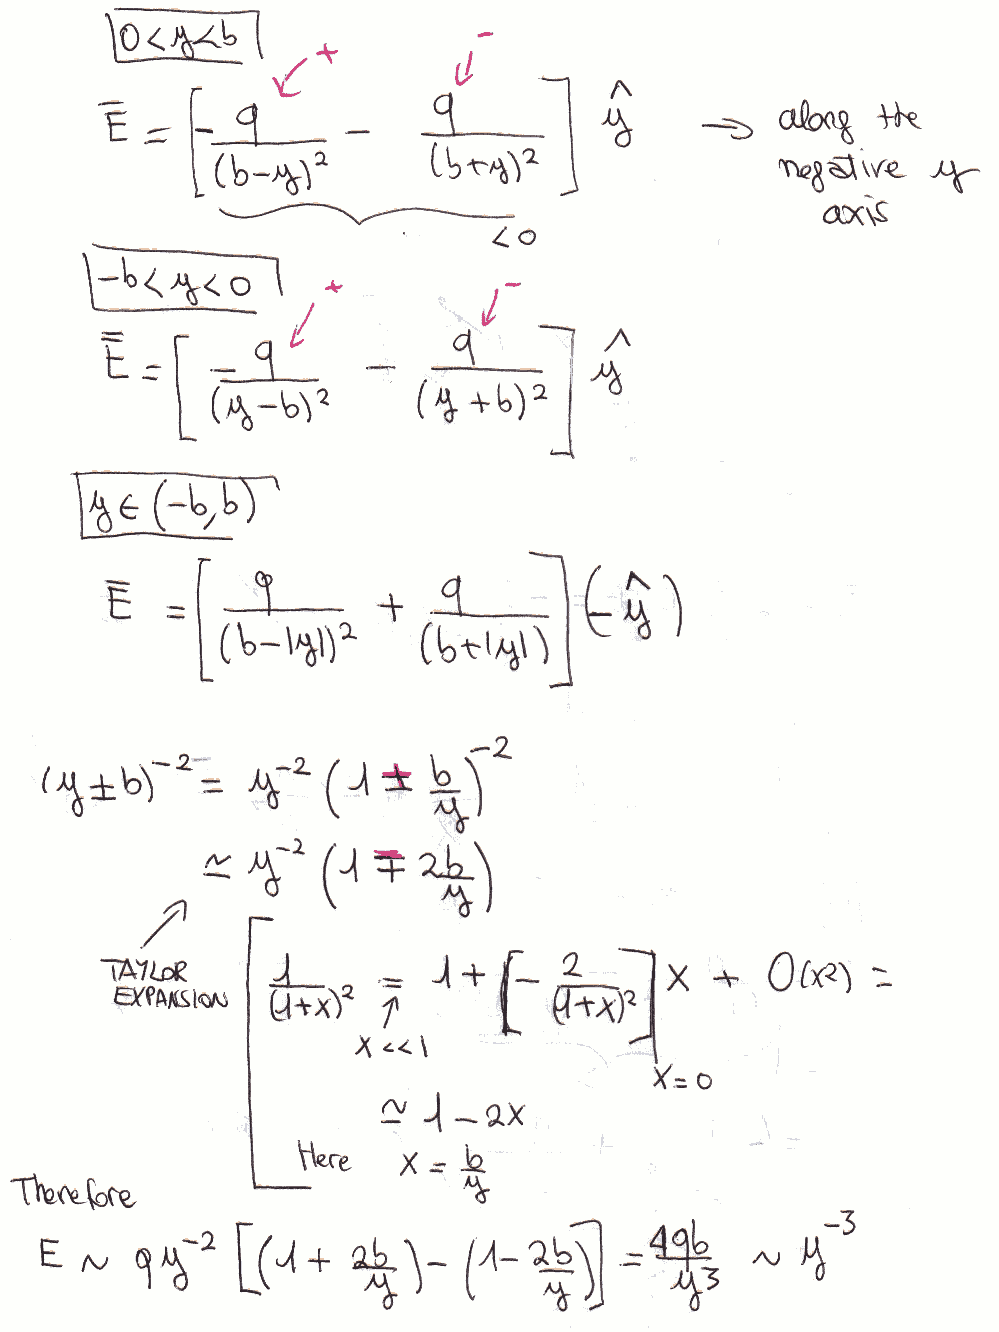 0 < y < b
+ -
E̅ = [ - q/(b-y)² - q/(b+y)² ] ŷ → along the
negative y
axis
< 0
-b < y < 0
+ -
E̅ = [ - q/(y-b)² - q/(y+b)² ] ŷ
y ∈ (-b, b)
E̅ = [ q/(b-|y|)² + q/(b+|y|) ] (-ŷ)
(y ± b)⁻² = y⁻² (1 ± b/y)⁻²
≃ y⁻² (1 ∓ 2b/y)
TAYLOR
EXPANSION
1/(1+x)² = 1 + [ - 2/(1+x)² ] x + O(x²) =
x << 1
x = 0
≃ 1 - 2x
Here x = b/y
Therefore
E ~ q y⁻² [ (1 + 2b/y) - (1 - 2b/y) ] = 4qb/y³ ~ y⁻³